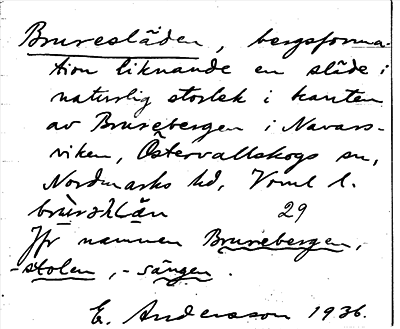 Bruresläden, bergsforma-
tion liknande en släde i
naturlig storlek i kanten
av Brurebergen i Navars-
viken, Östervallskogs sn,
Nordmarks hd, Vrml l.
29
Jfr namnen Brurebergen,
-stolen, -sängen.
E. Andersson 1936.